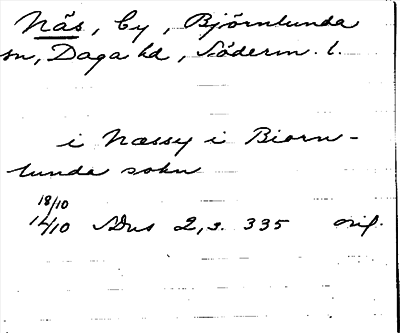 Näs, by, Björnlunda
sn, Daga hd, Söderm. l.
i Næssy i Biorn-
lunda sokn
18/10
14/10 SDns 2, s. 335 orig.